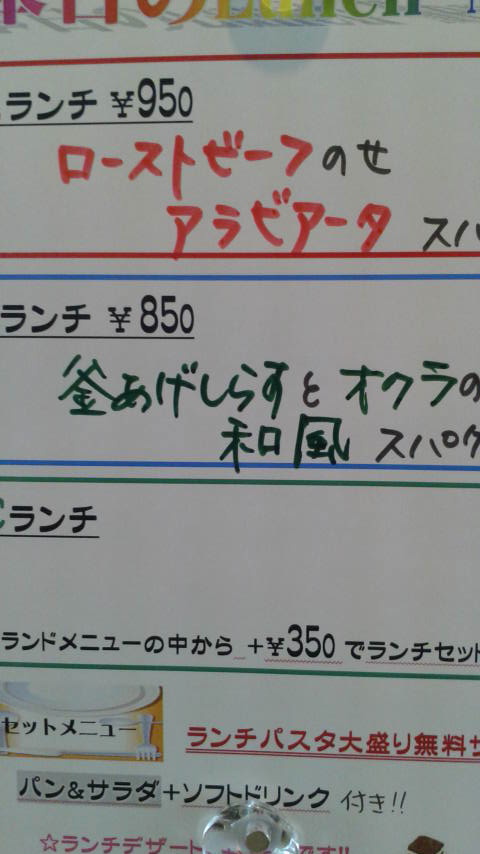 本日のLunch
ランチ ¥950
ローストビーフのせ
アラビアータ スパ
ランチ ¥850
釜あげしらすとオクラの
和風 スパゲ
Cランチ
ランドメニューの中から +¥350でランチセット
セットメニュー
ランチパスタ大盛り無料サ
パン&サラダ+ソフトドリンク 付き!!
☆ランチデザート です!!